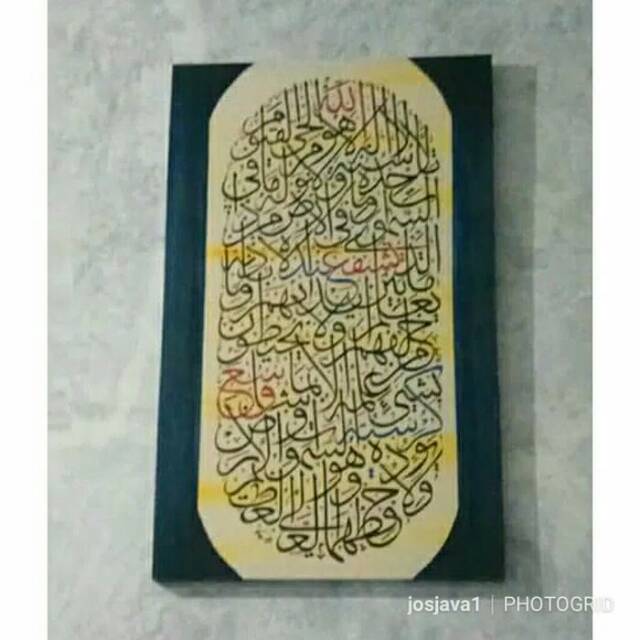 الله لا اله الا هو الحي القيوم
لا تاخذه سنة ولا نوم له ما في
السموات وما في الارض من ذا
الذي يشفع عنده الا باذنه
يعلم ما بين ايديهم وما
خلفهم ولا يحيطون
بشيء من علمه الا بما شاء وسع
كرسيه السموات والارض
ولا يؤده حفظهما وهو العلي العظيم
josjava1 | PHOTOGRID